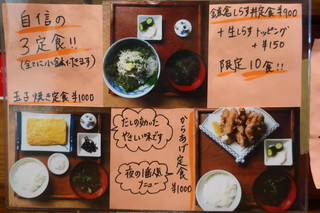 自信の
3定食!!
(全てに小鉢付きます)
釜名しらす丼定食¥900
+生しらすトッピング
+¥150
限定10食!!
玉子焼き定食¥1000
だしの効いた
やさしい味です
夜の1番人気
メニュー
からあげ定食
¥1000